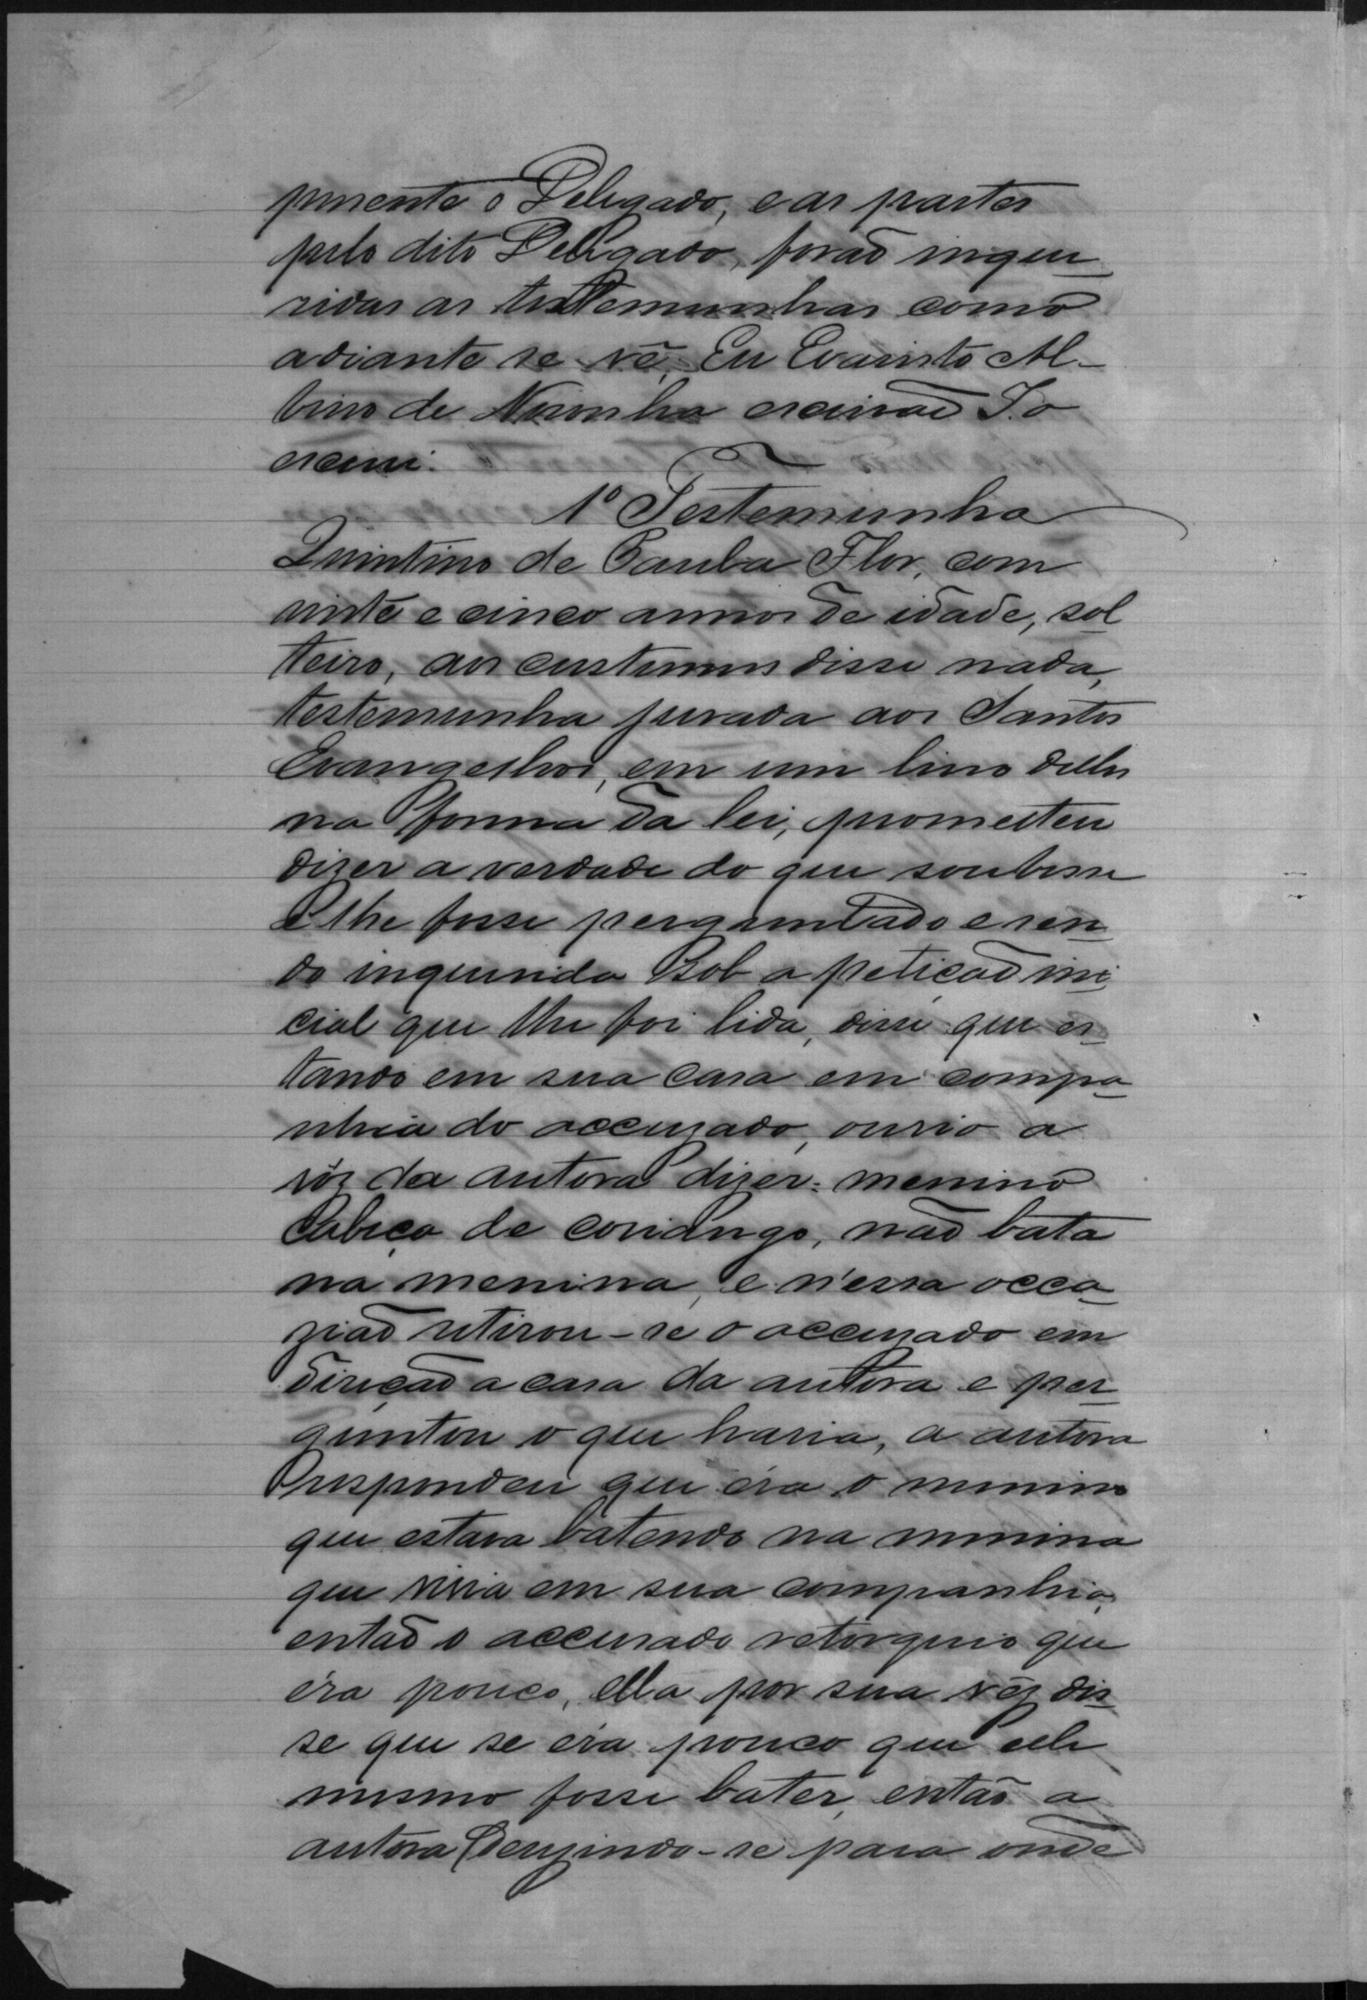 presente o Delegado, e as partes
pelo dito Delegado, forão inque_
ridas as testemunhas como
adiante se vê. Eu Evaristo Al-
bino de Noronha escrivão I. o
escrevi.
1ª Testemunha
Quintino de Paula Flor, com
vinte e cinco annos de idade, sol_
teiro, aos custumes disse nada,
testemunha jurada aos Santos
Evangelhos, em um livro delles
na forma da lei, prometteu
dizer a verdade do que soubesse
e lhe fosse perguntado e sen_
do inquirida sob a petição ini_
cial que lhe foi lida, disse que es_
tando em sua casa em compa_
nhia do accuzado, ouvio a
vóz da autora dizer: menino
Cabeça de coridngo, não bata
na menina, e n'essa occa_
zião retirou-se o accuzado em
direcção a casa da autora e per_
guntou o que havia, a autora
respondeu que éra o menino
que estava batendo na menina
que vivia em sua companhia,
então o accusado retorquio que
éra pouco, ella por sua vêz dis_
se que se éra pouco que elle
mesmo fosse bater, então a
autora derijindo-se para onde